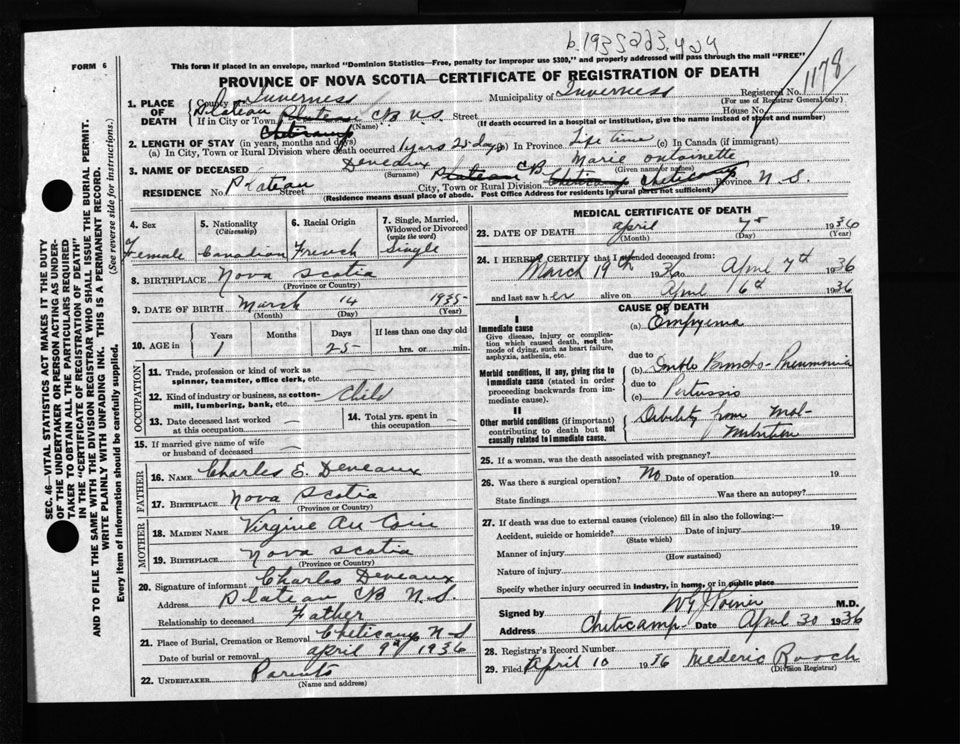 b.1935223.424
FORM 6
This form if placed in an envelope, marked "Dominion Statistics—Free, penalty for improper use $300," and properly addressed will pass through the mail "FREE"
PROVINCE OF NOVA SCOTIA—CERTIFICATE OF REGISTRATION OF DEATH
1178
1. PLACE OF DEATH County of Inverness Municipality of Inverness Registered No.
(For use of Registrar General only)
Plateau CB N.S. Street House No.
If in City or Town (Name) (If death occurred in a hospital or institution, give the name instead of street and number)
Cheticamp
2. LENGTH OF STAY (in years, months and days)
(a) In City, Town or Rural Division where death occurred 1 years 25 days (b) In Province Life time (c) In Canada (if immigrant)
3. NAME OF DECEASED Deveaux Marie Antoinette
(Surname) (Given name or names)
RESIDENCE No. Plateau Street Plateau CB City, Town or Rural Division Cheticamp Cheticamp Province N.S.
(Residence means usual place of abode. Post Office Address for residents in rural parts not sufficient)
4. Sex Female
5. Nationality (Citizenship) Canadian
6. Racial Origin French
7. Single, Married, Widowed or Divorced (write the word) Single
8. BIRTHPLACE Nova Scotia
(Province or Country)
9. DATE OF BIRTH March 14 1935
(Month) (Day) (Year)
10. AGE in Years Months Days If less than one day old
1 25 hrs. or min.
OCCUPATION
11. Trade, profession or kind of work as spinner, teamster, office clerk, etc. —
12. Kind of industry or business, as cotton-mill, lumbering, bank, etc. Child
13. Date deceased last worked at this occupation —
14. Total yrs. spent in this occupation —
15. If married give name of wife or husband of deceased —
FATHER
16. NAME Charles E. Deveaux
17. BIRTHPLACE Nova Scotia
(Province or Country)
MOTHER
18. MAIDEN NAME Virgine Au Coin
19. BIRTHPLACE Nova Scotia
(Province or Country)
20. Signature of informant Charles Deveaux
Address Plateau CB N.S.
Relationship to deceased Father
21. Place of Burial, Cremation or Removal Cheticamp N-S
Date of burial or removal April 9th 1936
22. UNDERTAKER Parents
(Name and address)
MEDICAL CERTIFICATE OF DEATH
23. DATE OF DEATH April 7th 1936
(Month) (Day) (Year)
24. I HEREBY CERTIFY that I attended deceased from:
March 19th 1936 to April 7th 1936
and last saw her alive on April 6th 1936
CAUSE OF DEATH
I
Immediate cause
Give disease, injury or complication which caused death, not the mode of dying, such as heart failure, asphyxia, asthenia, etc.
(a) Empyema
Morbid conditions, if any, giving rise to immediate cause (stated in order proceeding backwards from immediate cause).
due to
(b) Double Broncho-Pneumonia
due to
(c) Pertussis
II
Other morbid conditions (if important) contributing to death but not causally related to immediate cause.
Debility from Mal-
Nutrition
25. If a woman, was the death associated with pregnancy?
26. Was there a surgical operation? No Date of operation 19
State findings Was there an autopsy?
27. If death was due to external causes (violence) fill in also the following:—
Accident, suicide or homicide? Date of injury 19
(State which)
Manner of injury
(How sustained)
Nature of injury
Specify whether injury occurred in industry, in home, or in public place
Signed by M.D.
Address Cheticamp Date April 30 1936
28. Registrar's Record Number
29. Filed April 10 1936 Mederic Roach
(Division Registrar)
SEC. 46—VITAL STATISTICS ACT MAKES IT THE DUTY
OF THE UNDERTAKER OR PERSON ACTING AS UNDER-
TAKER TO OBTAIN ALL THE PARTICULARS REQUIRED
IN THE "CERTIFICATE OF REGISTRATION OF DEATH"
AND TO FILE THE SAME WITH THE DIVISION REGISTRAR WHO SHALL ISSUE THE BURIAL PERMIT.
WRITE PLAINLY WITH UNFADING INK. THIS IS A PERMANENT RECORD.
Every item of Information should be carefully supplied. (See reverse side for instructions.)